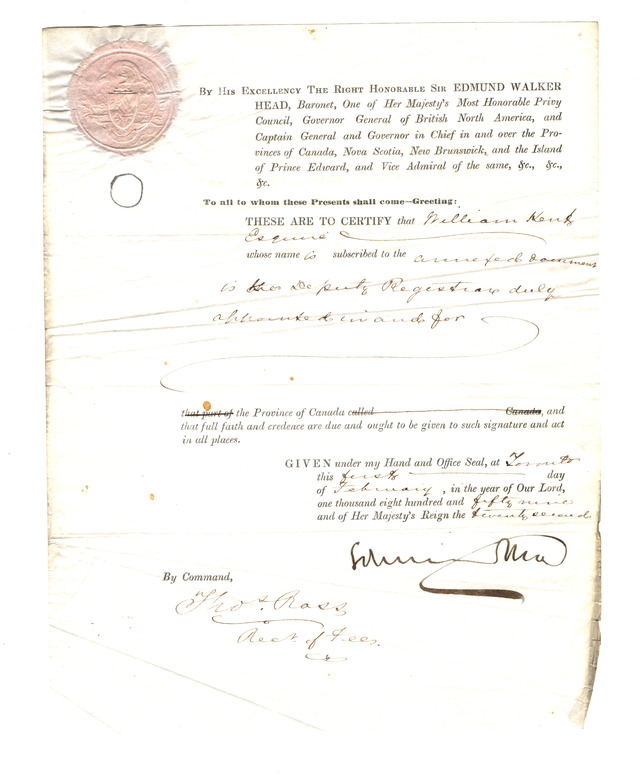 By His Excellency The Right Honorable Sir EDMUND WALKER
HEAD, Baronet, One of Her Majesty's Most Honorable Privy
Council, Governor General of British North America, and
Captain General and Governor in Chief in and over the Pro-
vinces of Canada, Nova Scotia, New Brunswick, and the Island
of Prince Edward, and Vice Admiral of the same, &c., &c.,
&c.
To all to whom these Presents shall come—Greeting:
THESE ARE TO CERTIFY that William Kent
Esquire
whose name is subscribed to the annexed document
is the Deputy Registrar duly
appointed in and for
that part of the Province of Canada called Canada, and
that full faith and credence are due and ought to be given to such signature and act
in all places.
GIVEN under my Hand and Office Seal, at Toronto
this first day
of February, in the year of Our Lord,
one thousand eight hundred and fifty nine
and of Her Majesty's Reign the twenty second
Edmund Head
By Command,
Thos. Ross
Rect. of Fees.